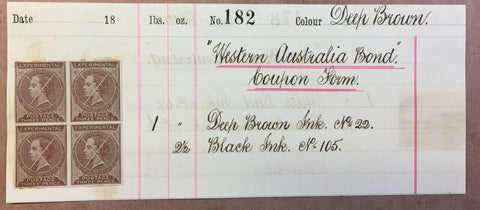 Date 18 lbs. oz. No. 182 Colour Deep Brown.
"Western Australia Bond."
Coupon Form.
1 " Deep Brown Ink. No. 22.
2½ Black Ink. No. 105.
EXPERIMENTAL EXPERIMENTAL
POSTAGE POSTAGE
THREE PENCE THREE PENCE
EXPERIMENTAL EXPERIMENTAL
POSTAGE POSTAGE
THREE PENCE THREE PENCE